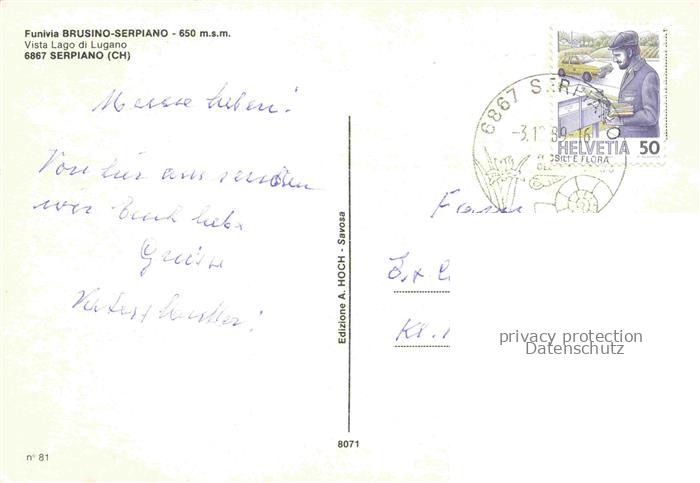 Funivia BRUSINO-SERPIANO - 650 m.s.m.
Vista Lago di Lugano
6867 SERPIANO (CH)
Meine Lieben!
Von hier aus senden
wir Euch liebe
Grüsse
Vater + Mutter!
n° 81
Edizione A. HOCH - Savosa
8071
6867 SERPIANO
-3.10.89-16
FOSSILI E FLORA
HELVETIA 50
Fam
Kl.
privacy protection
Datenschutz